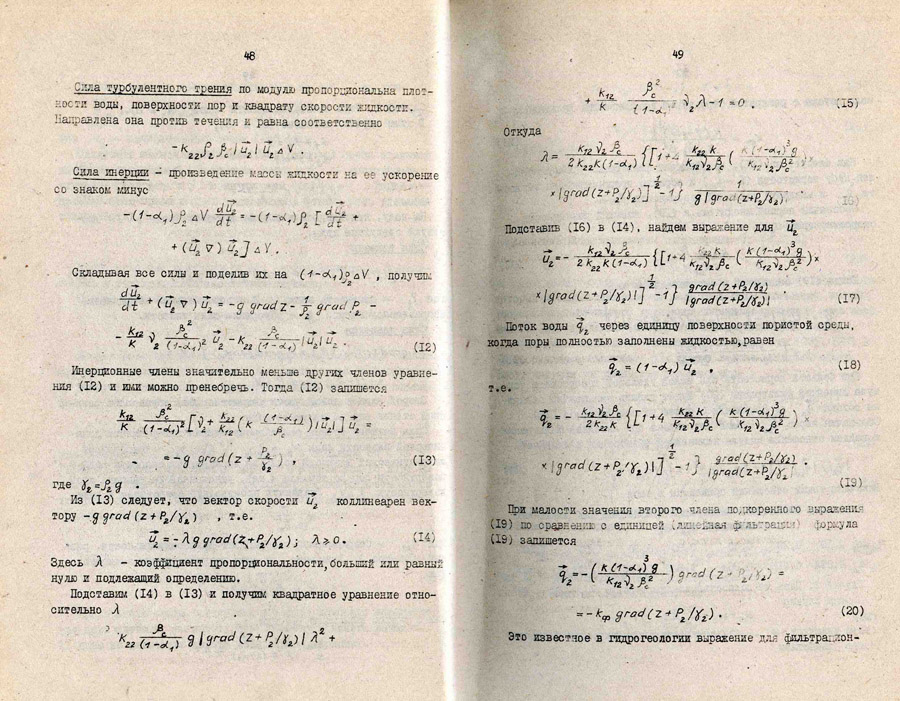 48
Сила турбулентного трения по модулю пропорциональна плот-
ности воды, поверхности пор и квадрату скорости жидкости.
Направлена она против течения и равна соответственно
-k₂₂ρ₂β_c|u⃗₂|u⃗₂ΔV.
Сила инерции - произведение массы жидкости на ее ускорение
со знаком минус
-(1-α₁)ρ₂ΔV du⃗₂/dt = -(1-α₁)ρ₂[du⃗₂/dt +
+ (u⃗₂∇)u⃗₂]ΔV.
Складывая все силы и поделив их на (1-α₁)ρ₂ΔV, получим
du⃗₂/dt + (u⃗₂∇)u⃗₂ = -g grad z - 1/ρ₂ grad P₂ -
- k₁₂/k ν₂ β_c²/(1-α₁)² u⃗₂ - k₂₂ β_c/(1-α₁)|u⃗₂|u⃗₂. (I2)
Инерционные члены значительно меньше других членов уравне-
ния (I2) и ими можно пренебречь. Тогда (I2) запишется
k₁₂/k β_c²/(1-α₁)² [ν₂ + k₂₂/k₁₂ (k (1-α₁)/β_c)|u⃗₂|]u⃗₂ =
= -g grad(z + P₂/γ₂), (I3)
где γ₂=ρ₂g.
Из (I3) следует, что вектор скорости u⃗₂ коллинеарен век-
тору -g grad(z+P₂/γ₂), т.е.
u⃗₂ = -λg grad(z+P₂/γ₂); λ⩾0. (I4)
Здесь λ - коэффициент пропорциональности, больший или равный
нулю и подлежащий определению.
Подставим (I4) в (I3) и получим квадратное уравнение отно-
сительно λ
k₂₂ β_c/(1-α₁) g|grad(z+P₂/γ₂)|λ² +
49
+ k₁₂/k β_c²/(1-α₁) ν₂λ-1=0. (I5)
Откуда
λ = k₁₂ν₂β_c/2k₂₂k(1-α₁) {[1+4 k₂₂k/k₁₂ν₂β_c (k(1-α₁)³g/k₁₂ν₂β_c²)
×|grad(z+P₂/γ₂)|]^½ -1} 1/g|grad(z+P₂/γ₂)|. (I6)
Подставив (I6) в (I4), найдем выражение для u⃗₂
u⃗₂ = - k₁₂ν₂β_c/2k₂₂k(1-α₁) {[1+4 k₂₂k/k₁₂ν₂β_c (k(1-α₁)³g/k₁₂ν₂β_c²)×
×|grad(z+P₂/γ₂)|]^½ -1} grad(z+P₂/γ₂)/|grad(z+P₂/γ₂)|. (I7)
Поток воды q⃗₂ через единицу поверхности пористой среды,
когда поры полностью заполнены жидкостью, равен
q⃗₂ = (1-α₁)u⃗₂, (I8)
т.е.
q⃗₂ = - k₁₂ν₂β_c/2k₂₂k {[1+4 k₂₂k/k₁₂ν₂β_c (k(1-α₁)³g/k₁₂ν₂β_c²)×
×|grad(z+P₂/γ₂)|]^½ -1} grad(z+P₂/γ₂)/|grad(z+P₂/γ₂|.
(I9)
При малости значения второго члена подкоренного выражения
(I9) по сравнению с единицей (линейная фильтрация) формула
(I9) запишется
q⃗₂ = -(k(1-α₁)³g/k₁₂ν₂β_c²)grad(z+P₂/γ₂) =
= -k_ф grad(z+P₂/γ₂). (20)
Это известное в гидрогеологии выражение для фильтрацион-